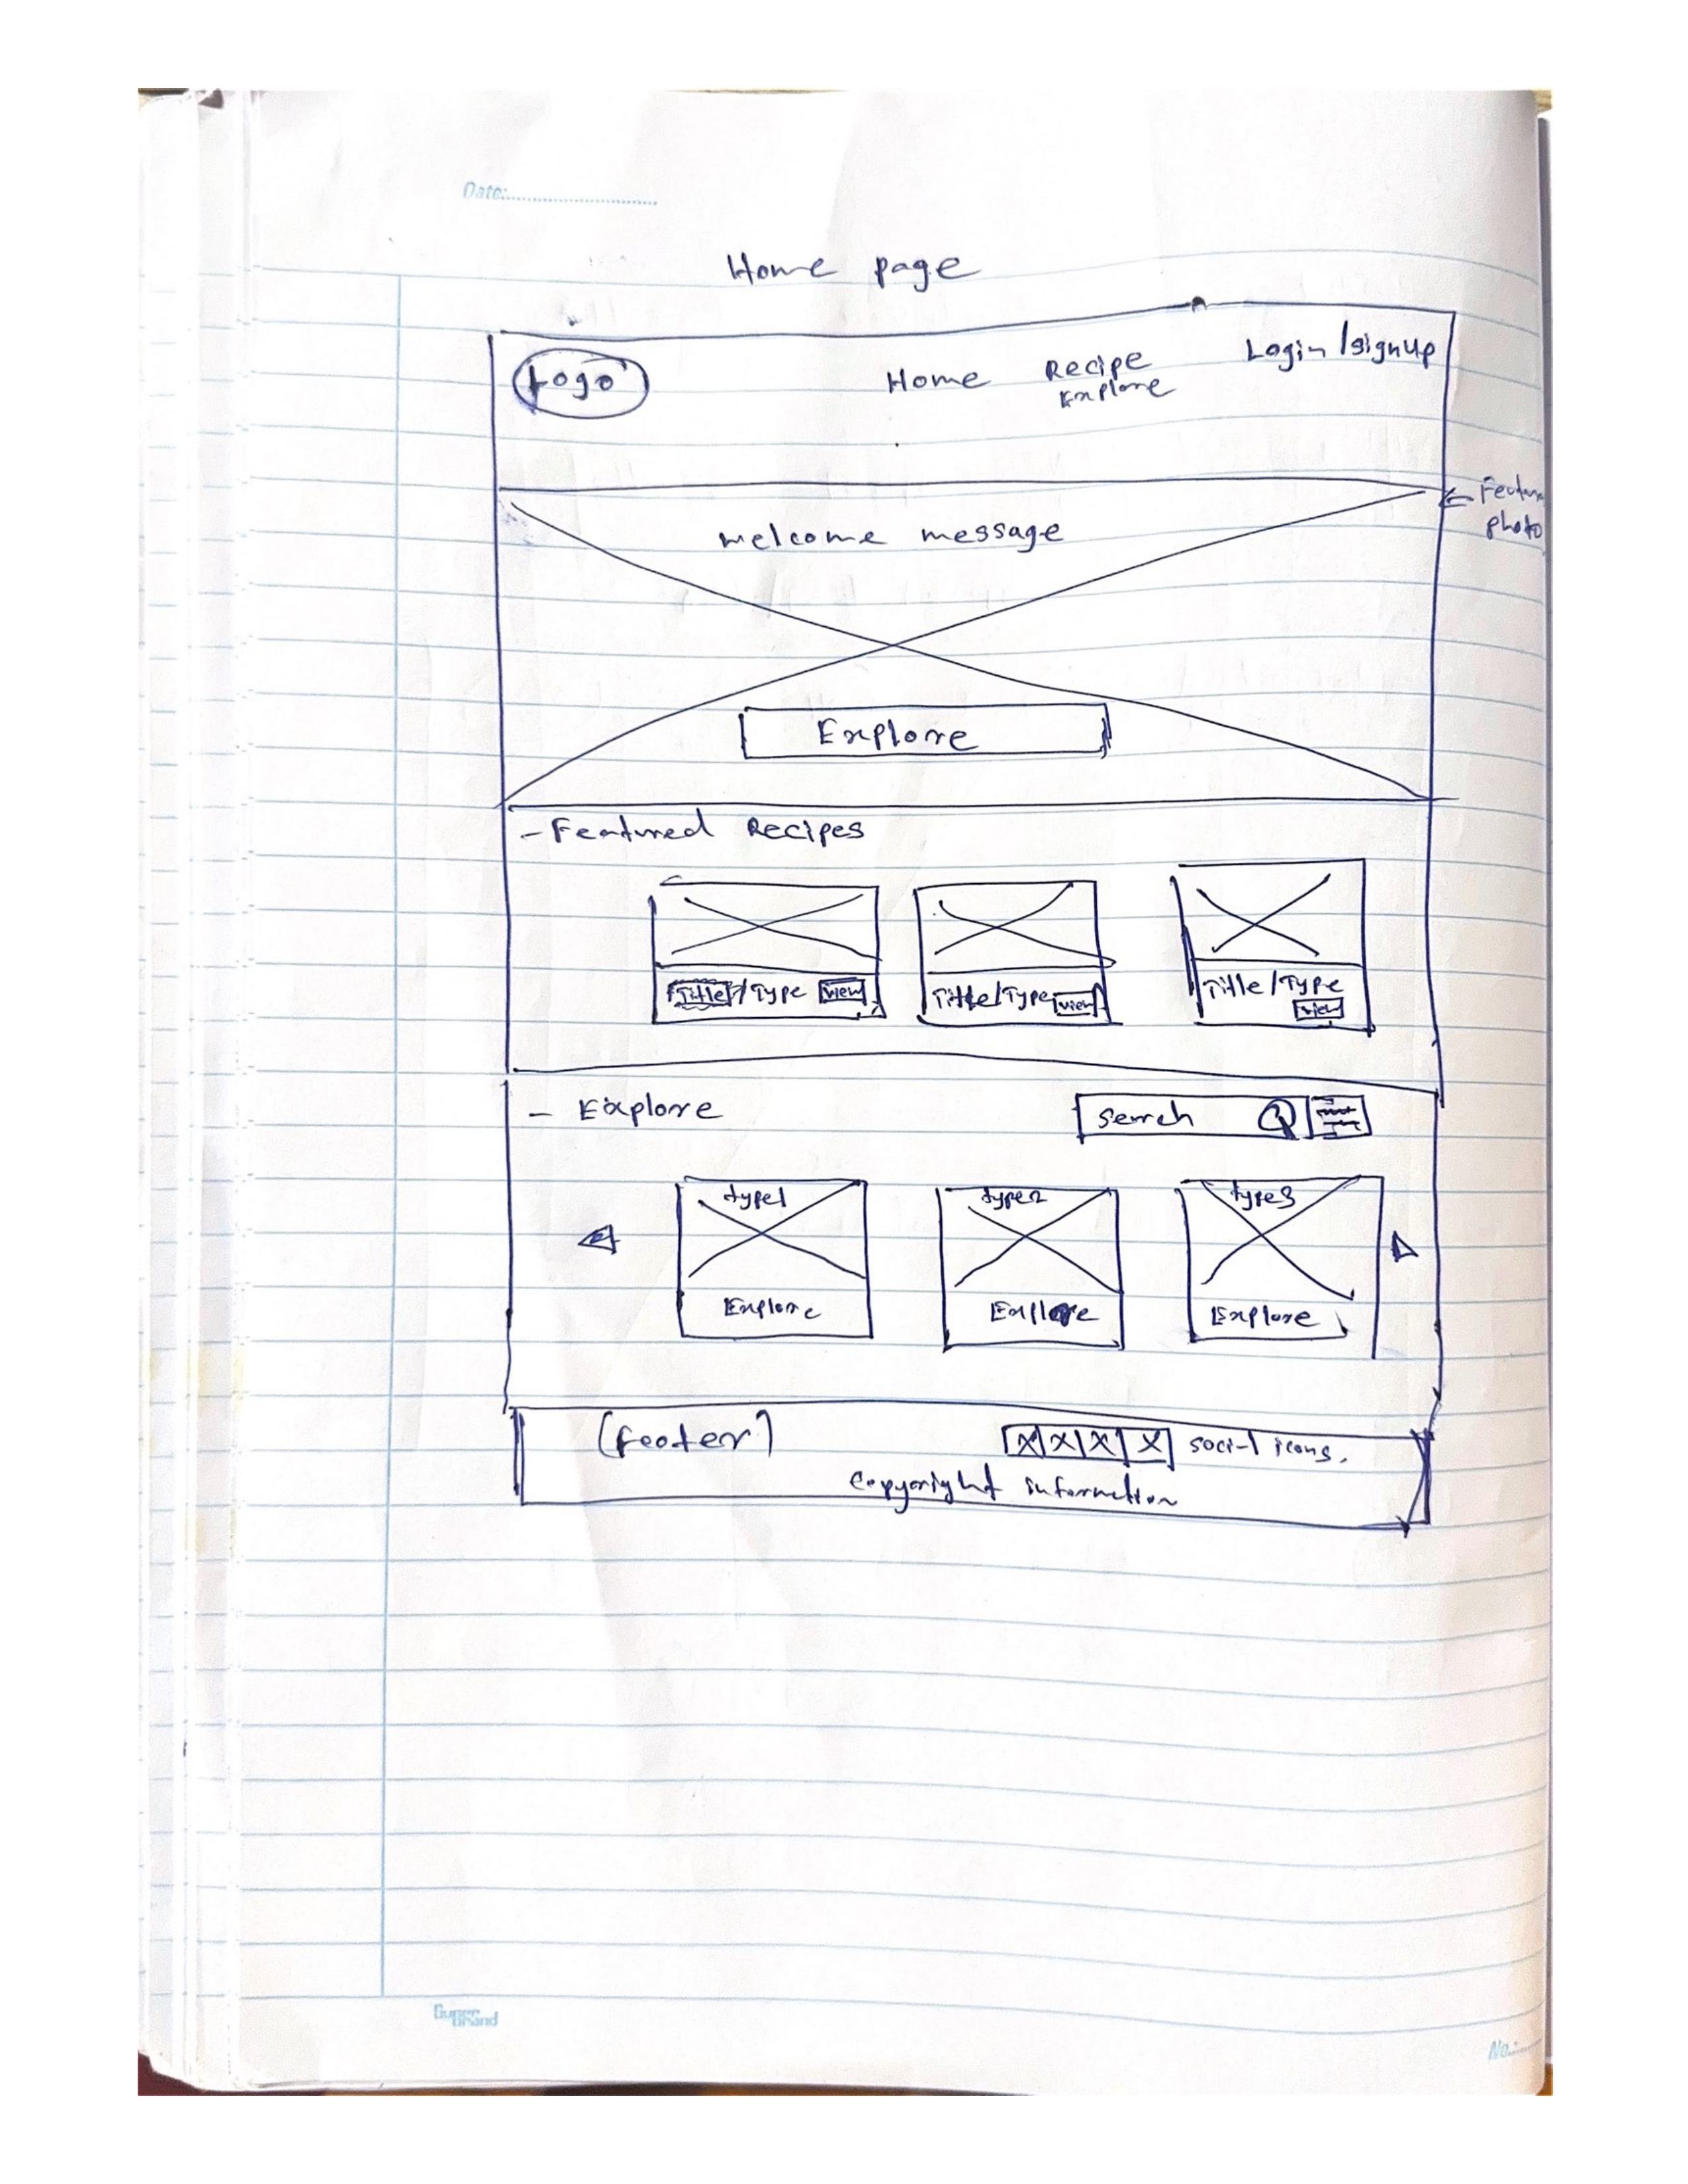 Date:
Home page
Logo Home Recipe Explore Login/signup
Feature photo
welcome message
Explore
- Featured Recipes
Title/Type view Title/Type view Title/Type view
- Explore search
type1 type2 type3
Explore Explore Explore
(footer) social icons.
copyright information
No.: